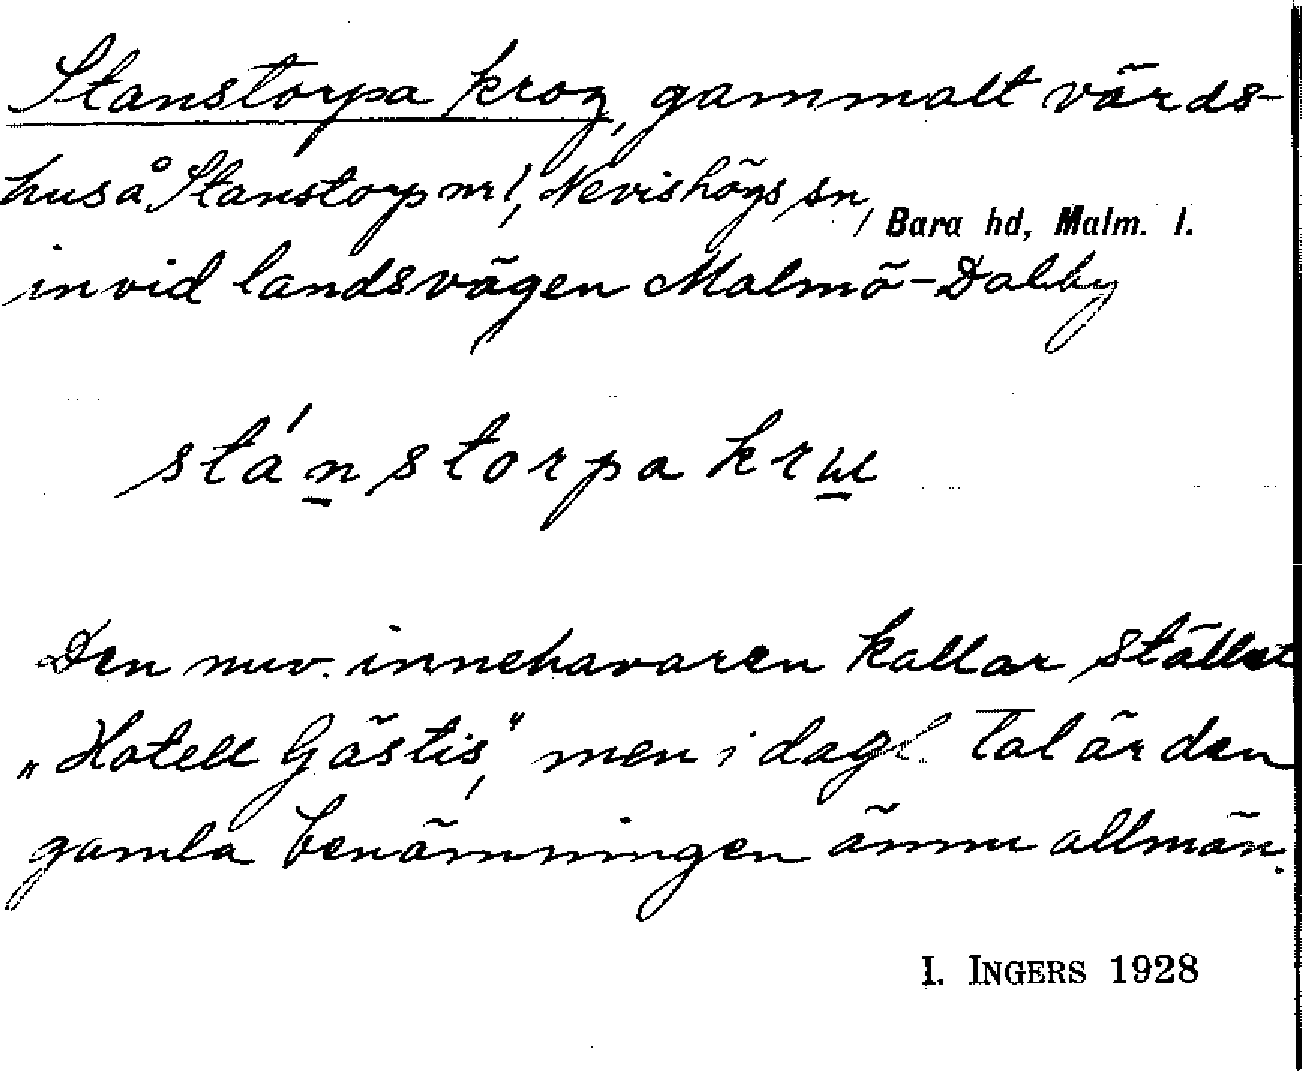 Stanstorpa krog, gammalt värds-
hus å Stanstorp nr 1, Nevishögs sn,
Bara hd, Malm. l.
invid landsvägen Malmö-Dalby
stánstorpa krɯ
Den nuv. innehavaren kallar stället
„Hotell Gästis", men i dagl. tal är den
gamla benämningen ännu allmän.
I. INGERS 1928